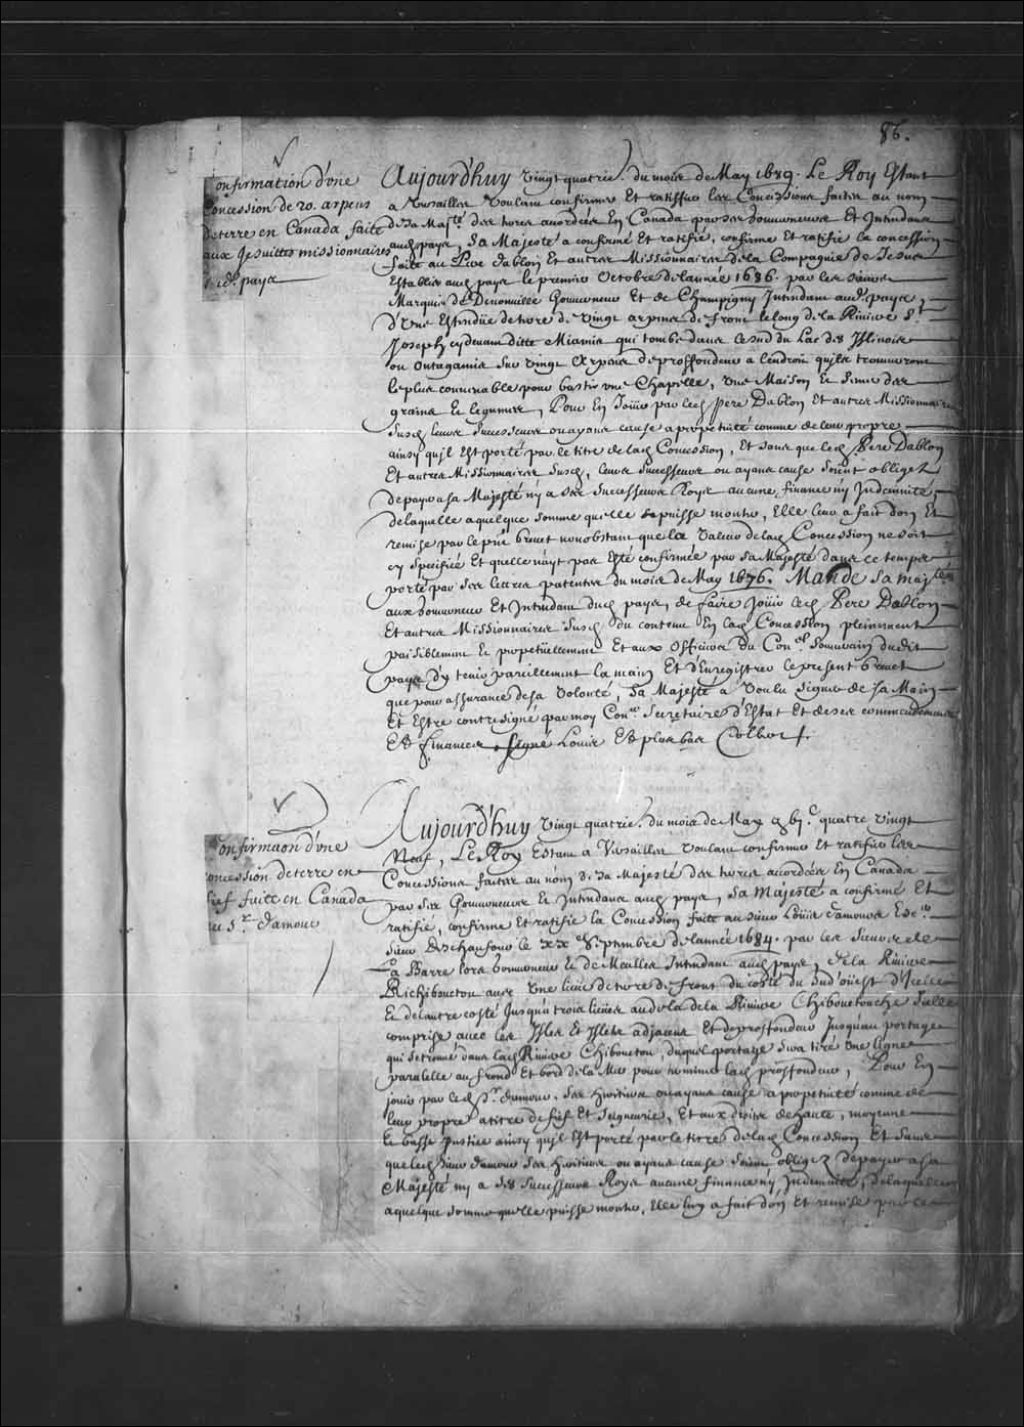 86.
onfirmation d'une
Concession de 20. arpens
de terre en Canada faite
aux Jesuittes missionnaires
aud. pays
Aujourd'huy vingt quatrie. du mois de May 1689. Le Roy Estant
a Versailles voulant confirmer Et ratiffier les Concessions faites au nom
de Sa Maj.té des terres accordées En Canada par ses Gouverneurs Et Intendans
aud pays, Sa Majesté a confirmé Et ratifié, confirme Et ratifie la concession
faite au Pere Dablon Et autres Missionnaires de la Compagnie de Jesus
Establis aud pays le premier Octobre de l'année 1686. par les sieurs
Marquis de Denonville Gouverneur Et de Champigny Intendant aud. pays,
d'Une Estendüe de terre de vingt arpens de front le long de la Riviere S.t
Joseph cydevant ditte Miamis qui tombe dans le sud du Lac des Islinois
ou Outagamis sur vingt Arpens de proffondeur a l'endroit qu'ils trouveront
le plus convenable pour bastir une Chapelle, une Maison Et semer des
grains Et legumes, Pour En Joüir par led Pere Dablon Et autres Missionnaires
Susd. leurs Successeurs ou ayans cause a perpetuité comme de leur propre
ainsy qu'jl Est porté par le titre de lad Concession, Et sans que led. Pere Dablon
Et autres Missionnaires Susd., leurs Successeurs ou ayans cause soient obligez
de payer a Sa Majesté ny a ses Successeurs Roys aucune finance ny Indemnité,
de laquelle a quelque somme qu'elle se puisse monter, Elle leur a fait don Et
remise par le pnt brevet nonobstant que la Valeur de lad Concession ne soit
cy specifiée Et quelle n'ayt pas Esté confirmée par Sa Majesté dans le temps
porté par ses lettres patentes du mois de May 1676. Mande Sa Maj.té
aux Gouverneur Et Intendant dud pays, de faire Joüir led Pere Dablon
Et autres Missionnaires Susd. du contenu En lad Concession pleinement
paisiblement Et perpetüellement Et aux Officiers du Con.el Souverain dudit
pays d'y tenir pareillement la main Et d'Enregistrer le present brevet
que pour assurance de sa volonté, Sa Majesté a voulu signer de Sa Main
Et Estre contresigné par moy Con.er Secretaire d'Estat Et de ses commandemens
Et finances. Signé Louis Et plus bas Colbert.
onfirmaon d'une
oncession de terre en
fief faite en Canada
au S.r damour
Aujourd'huy vingt quatrie. du mois de May g bj.c quatre vingt
Neuf, Le Roy Estant a Versailles voulant confirmer Et ratifier les
Concessions faites au nom de Sa Majesté des terres accordées En Canada
par ses Gouverneurs Et Intendans aud pays, Sa Majesté a confirmé Et
ratifié, confirme Et ratifie la Concession faite au sieur Loüis damours
sieur Deschaufour le xx.e Septembre de l'année 1684. par les Sieurs de
la Barre lors Gouverneur Et de Meulles Intendant aud pays, de la Riviere
Richibouctou avec Une lieüe de terre de front du costé du Sud'oüest d'Icelle
Et de l'autre costé Jusqu'a trois lieües au dela de la Riviere Chibouctouche Icelle
comprise avec les Isles Et Islets adjacens Et de proffondeur Jusqu'au portage
qui se trouve dans lad Riviere Chibouctou, duquel portage sera tiré Une ligne
paralelle au front Et bord de la Mer pour terminer lad proffondeur, Pour En
jouir par led S.r damour, ses heritiers ou ayans cause a perpetuité comme de
leur propre a titre de fief Et Seigneurie, Et aux droits de haute, moyenne
Et basse Justice ainsy qu'jl Est porté par le titre de lad Concession Et sans
que led. sieur damour ses heritiers ou ayans cause soient obligez de payer a Sa
Majesté ny a ses Successeurs Roys aucune finance ny Indemnité, de laquelle
a quelque somme qu'elle puisse monter, Elle luy a fait don Et remise par le